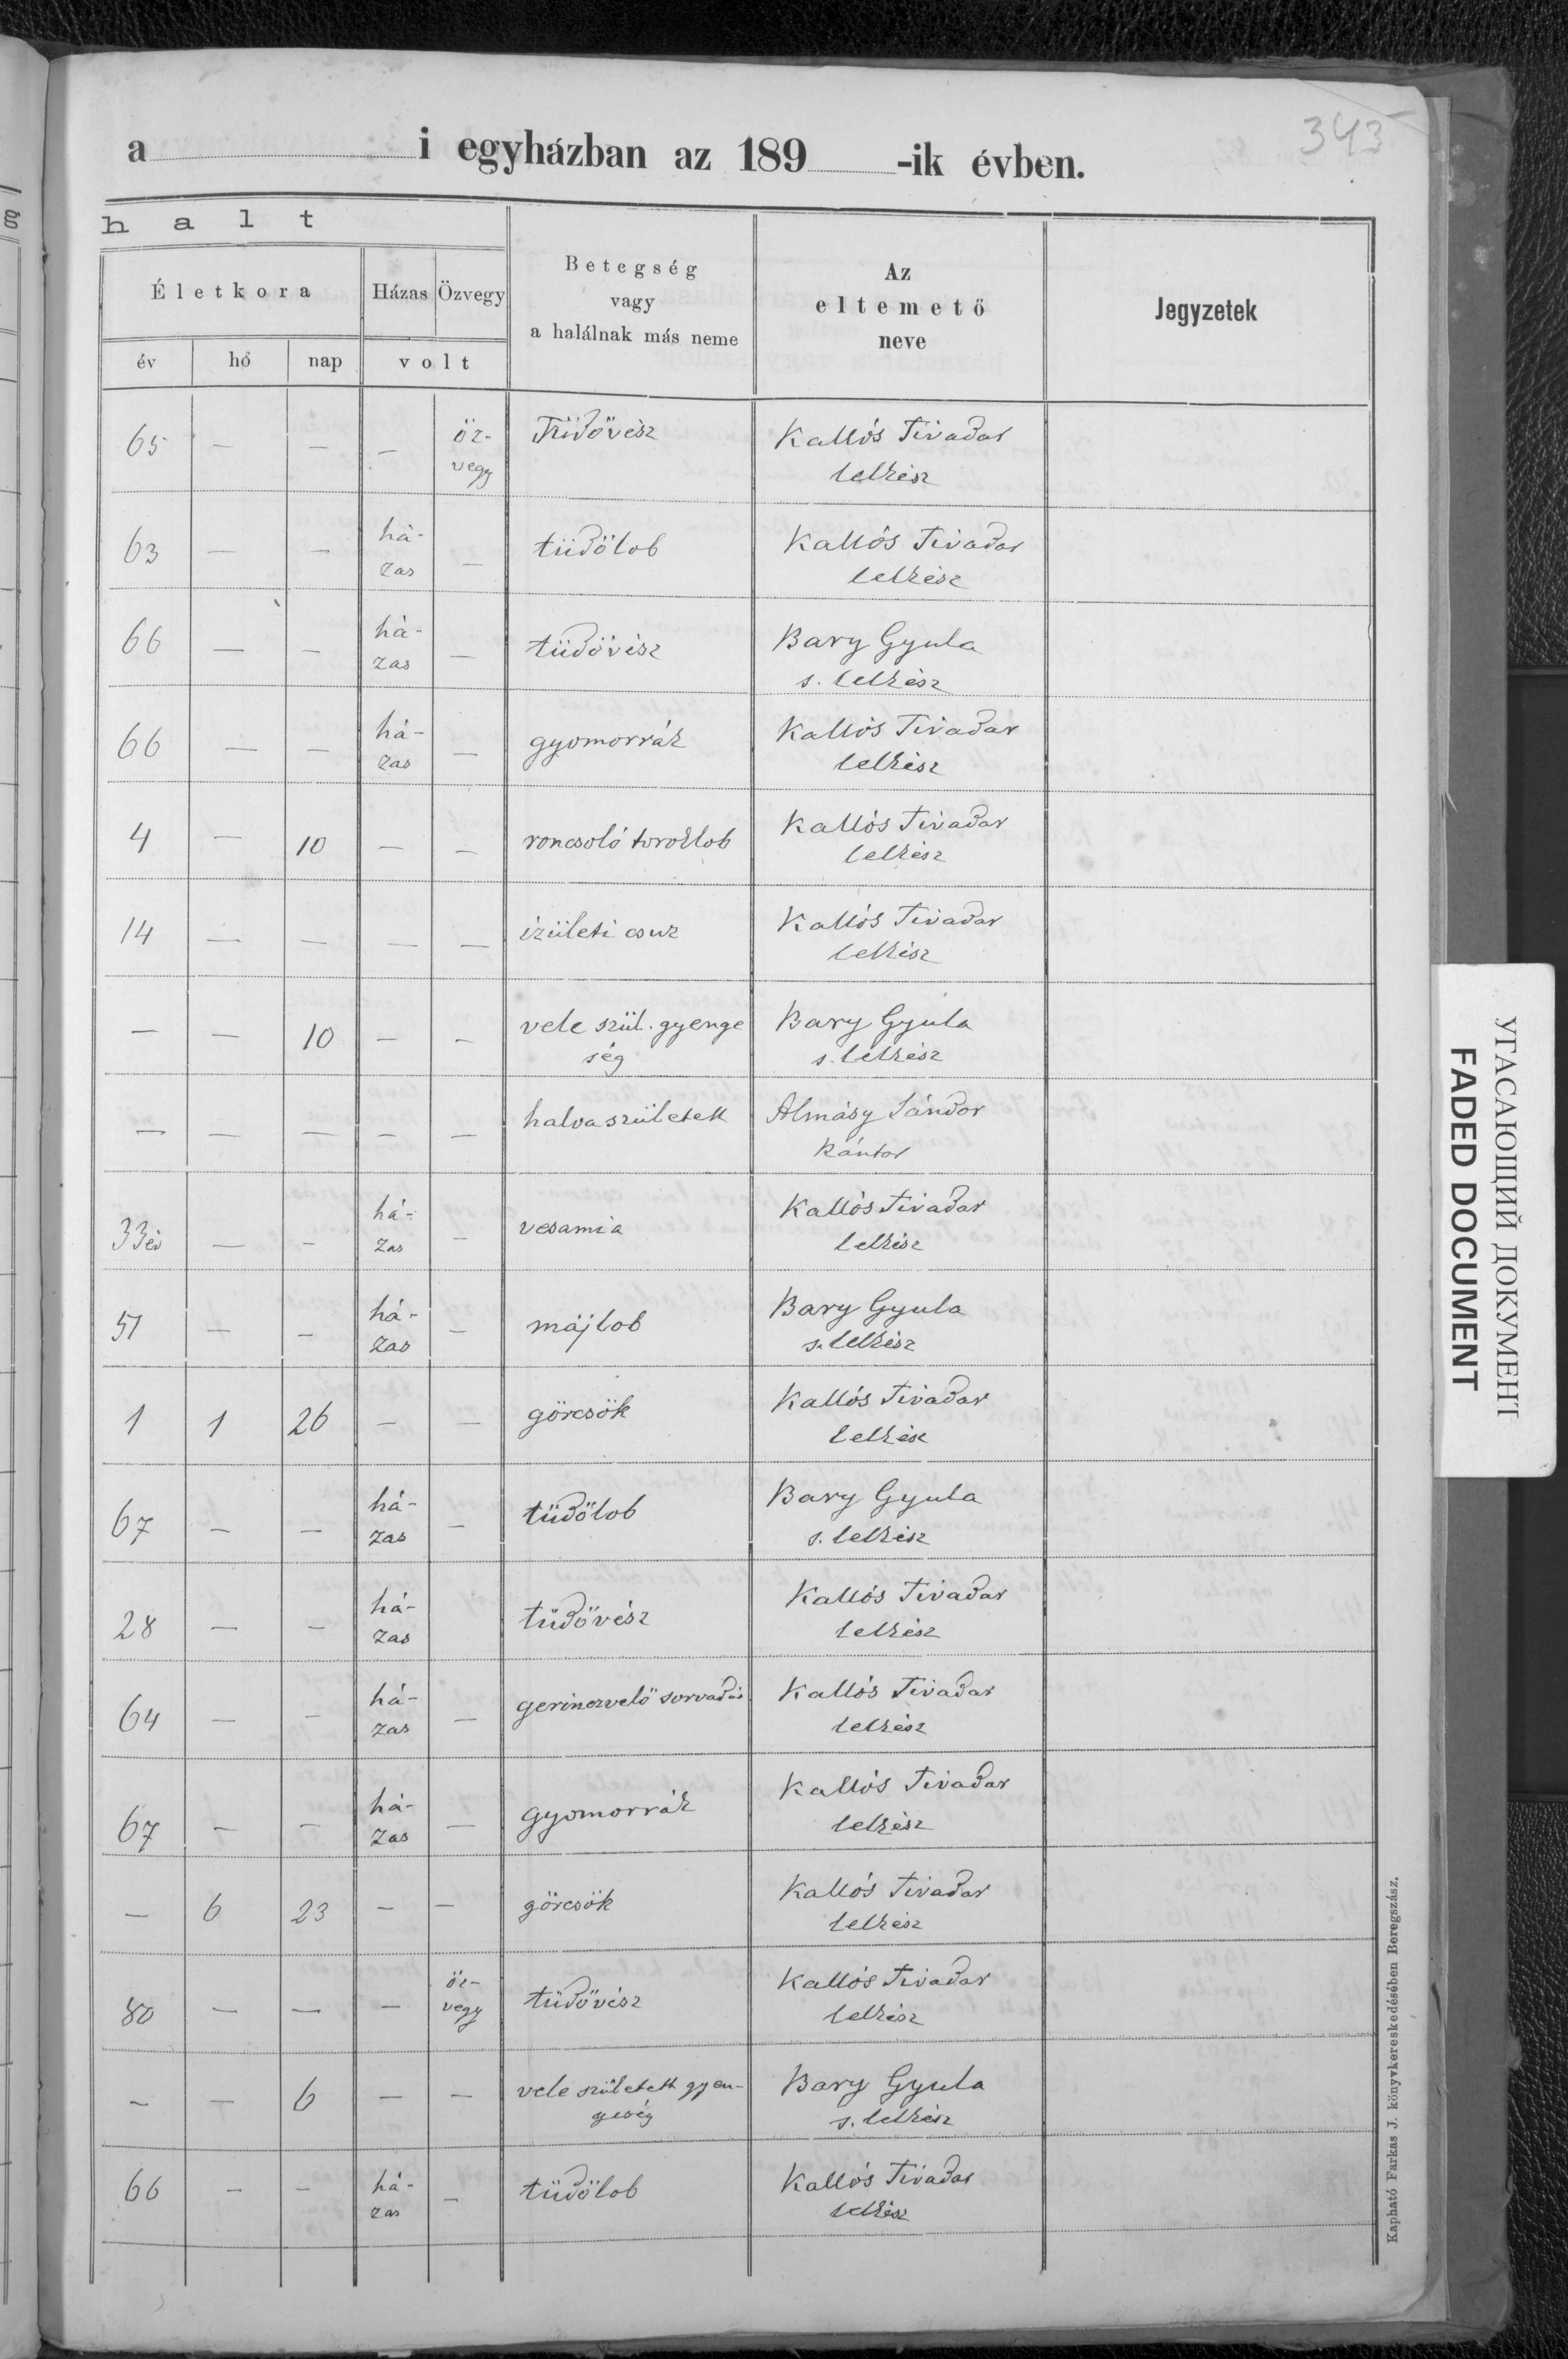 343
a i egyházban az 189 -ik évben.
g
halt
Életkora
Házas Özvegy
Betegség
vagy
a halálnak más neme
Az
eltemető
neve
Jegyzetek
év hó nap volt
65 — — — öz-
vegy
Tüdővész
Kallós Tivadar
lelkész
63 — — há-
zas —
tüdőlob
Kallós Tivadar
lelkész
66 — — há-
zas —
tüdővész
Bary Gyula
s. lelkész
66 — — há-
zas —
gyomorrák
Kallós Tivadar
lelkész
4 — 10 — — roncsoló toroklob
Kallós Tivadar
lelkész
14 — — — — izületi csuz
Kallós Tivadar
lelkész
— — 10 — — vele szül. gyenge
ség
Bary Gyula
s. lelkész
— — — — — halva született
Almásy Sándor
kántor
33 év — — há-
zas —
vesamia
Kallós Tivadar
lelkész
51 — — há-
zas —
májlob
Bary Gyula
s. lelkész
1 1 26 — — görcsök
Kallós Tivadar
lelkész
67 — — há-
zas —
tüdőlob
Bary Gyula
s. lelkész
28 — — há-
zas
tüdővész
Kallós Tivadar
lelkész
64 — — há-
zas —
gerinczvelő sorvadás
Kallós Tivadar
lelkész
67 — — há-
zas —
gyomorrák
Kallós Tivadar
lelkész
— 6 23 — — görcsök
Kallós Tivadar
lelkész
80 — — — öz-
vegy
tüdővész
Kallós Tivadar
lelkész
— — 6 — — vele született gyen-
geség
Bary Gyula
s. lelkész
66 — — há-
zas —
tüdőlob
Kallós Tivadar
lelkész
Kapható Farkas J. könyvkereskedésében Beregszász.
УГАСАЮЩИЙ ДОКУМЕНТ
FADED DOCUMENT